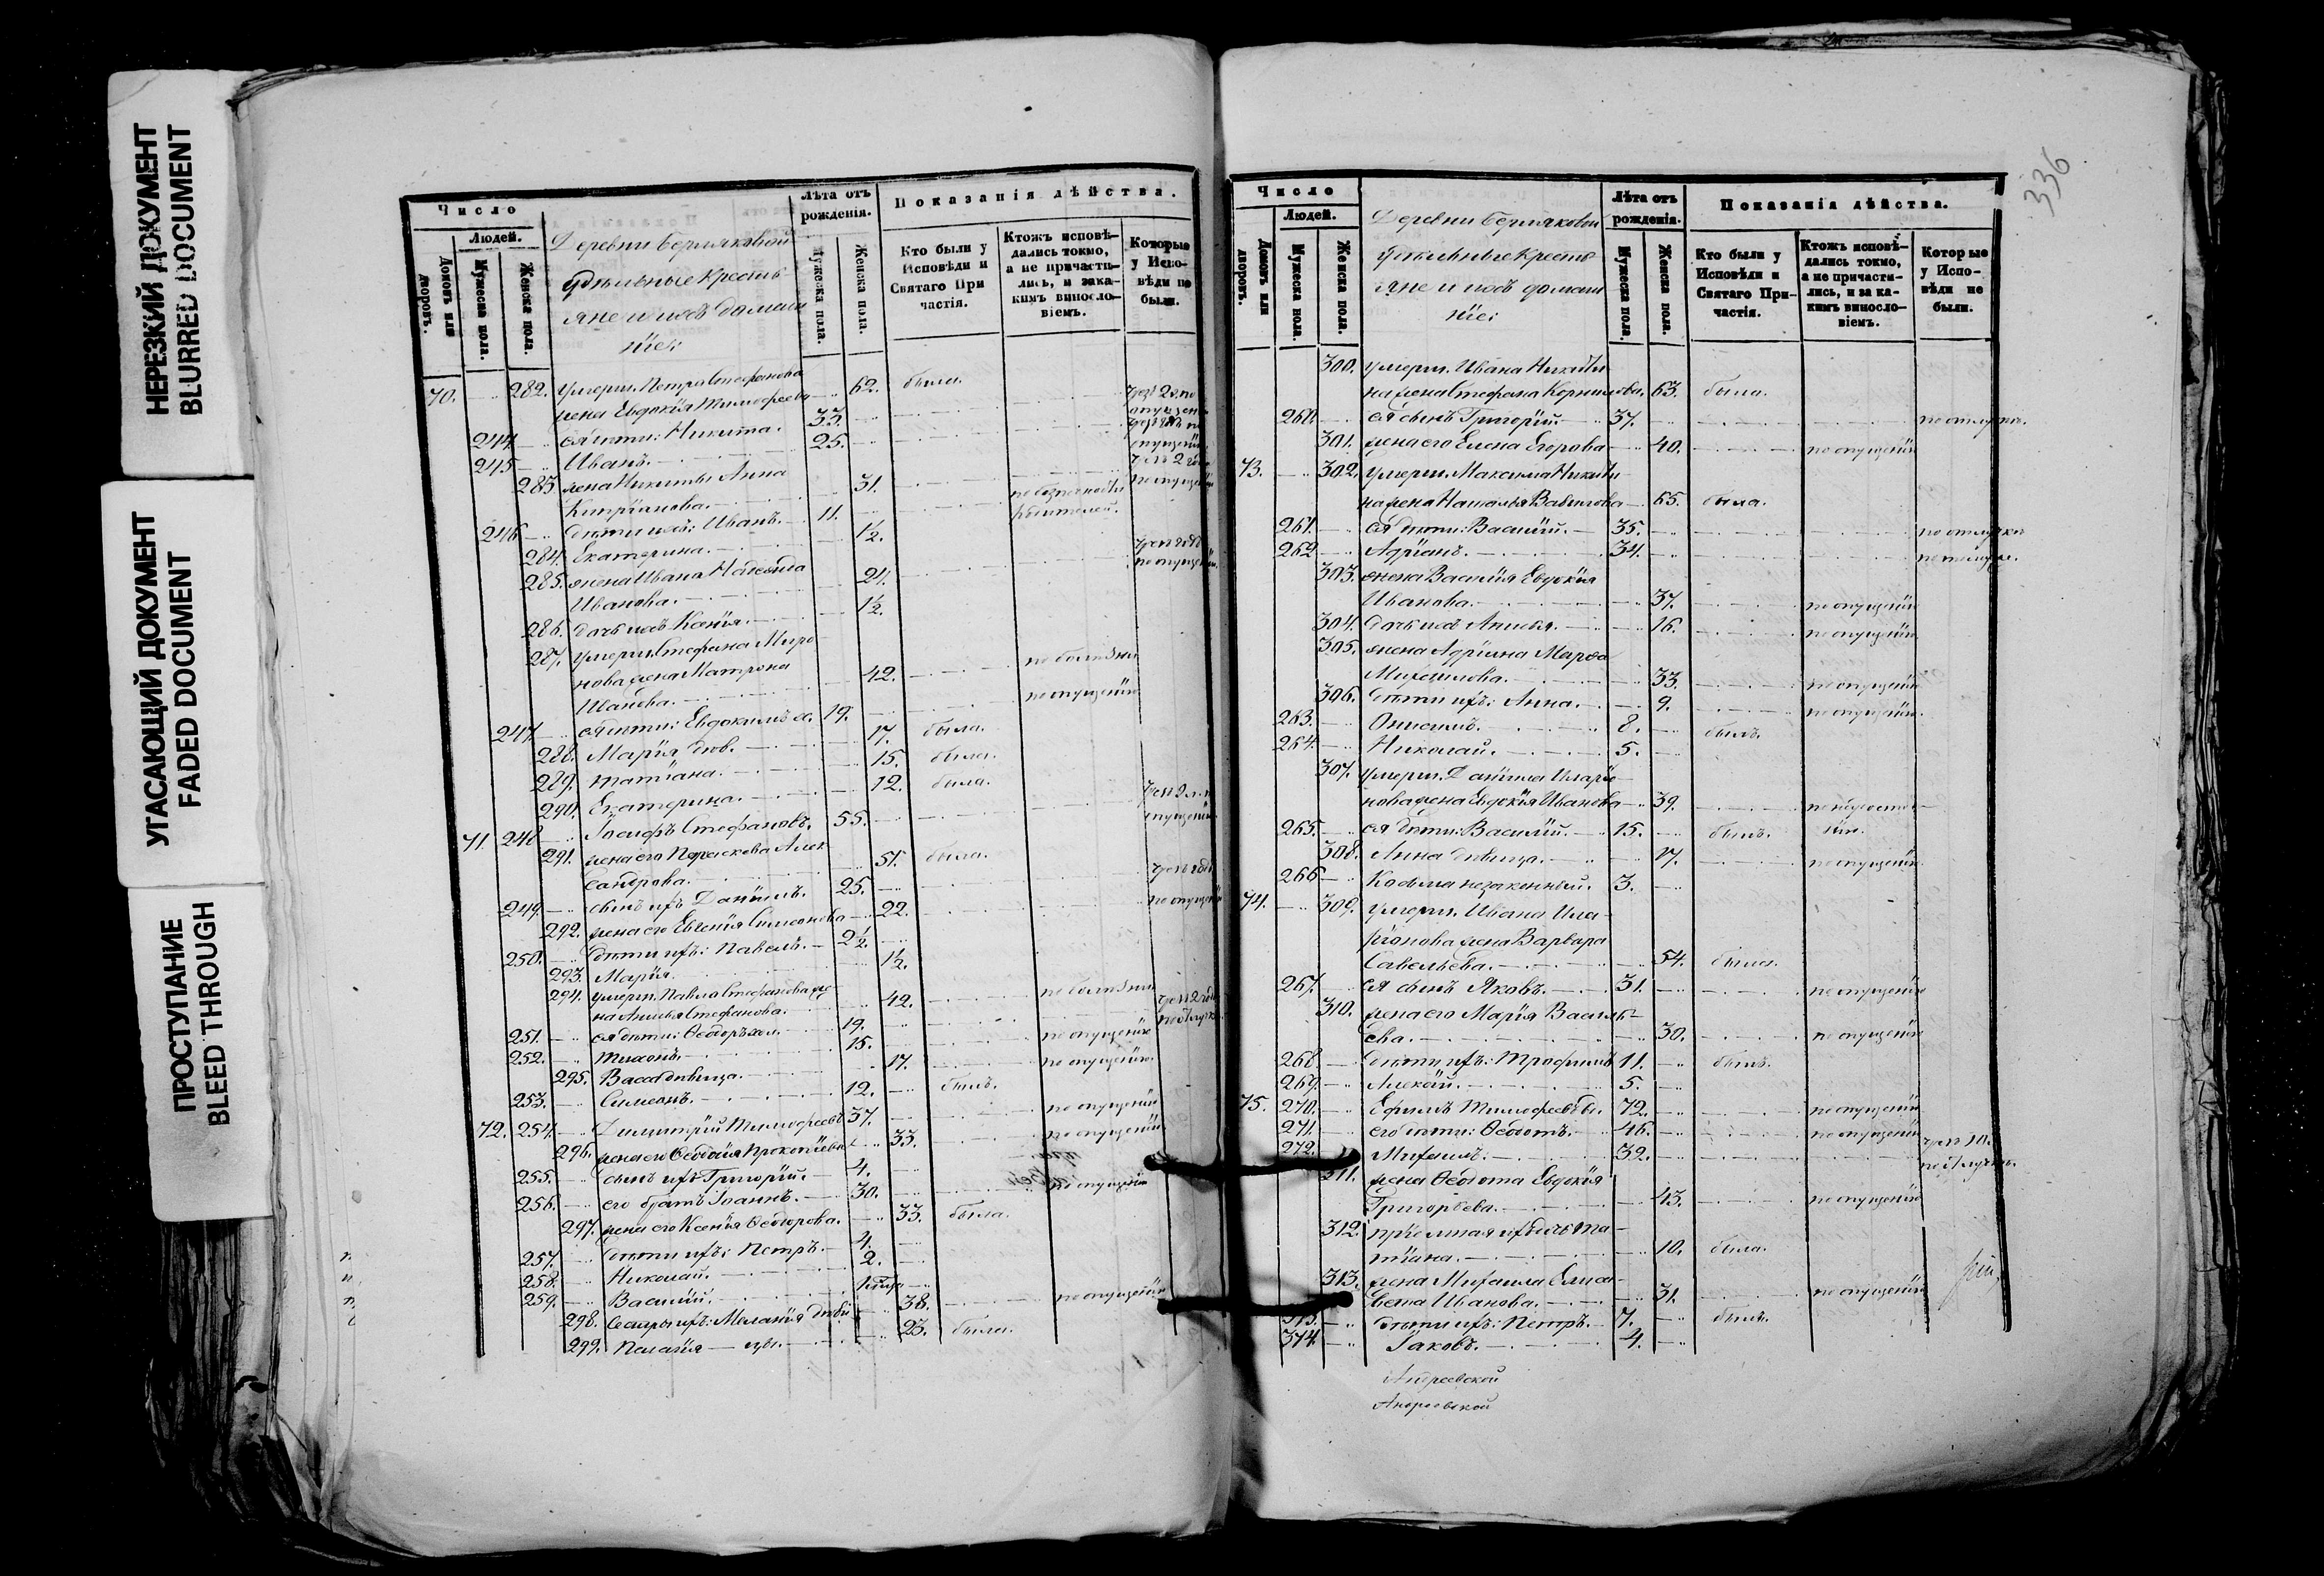 НЕРЕЗКИЙ ДОКУМЕНТ
BLURRED DOCUMENT
УГАСАЮЩИЙ ДОКУМЕНТ
FADED DOCUMENT
ПРОСТУПАНИЕ
BLEED THROUGH
Число
Людей.
Домовъ или дворовъ.
Мужеска пола.
Женска пола.
Деревни
удѣльные крестья
яне и ихъ домаш
ніе:
Лѣта отъ рожденія.
Мужеска пола.
Женска пола.
Показанія дѣйства.
Кто были у Исповѣди и Святаго При частія.
Ктожъ исповѣ-дались токмо, а не причасти-лись, и зака-кимъ винословіемъ.
Которые у Испо-вѣди не были.
70. 282. умерш. Петра Стефанова
жена Евдокія Тимофеева 62. была.
244. ея дѣти: Никита. 33.
245. Иванъ. 25.
283 жена Никиты Анна
Кипріанова. 31.
246 дѣти ихъ: Иванъ. 11.
284. Екатерина. 1½.
285. жена Ивана Надежда
Иванова. 24.
286. дочь ихъ Ксенія. 1½.
287. умерш. Стефана Миро
нова жена Матрона
Иванова. 42. по болѣзни
247. ея дѣти: Евдокимъ 19. по опущенію
288. Марія дѣв. 17. была.
289. Татіана. 15. была.
290. Екатерина. 12. была.
71 248 Іосифъ Стефановъ. 55.
291. жена его Параскева Алек
сандрова. 51. была.
249. сынъ ихъ Даніилъ. 25.
292. жена его Евгенія Симеонова 22.
250. дѣти ихъ: Павелъ. 2½.
293. Марія. 1½.
294. умерш. Павла Стефанова же
на Анисья Стефанова. 42. по болѣзни
251. ея дѣти: Ѳеодоръ 19.
252. Тихонъ. 15. по опущенію
295. Васса дѣвица. 17. по опущенію.
253. Симеонъ. 12. былъ.
72. 254. Димитрій Тимофеевъ 37. по опущенію
296. жена его Ѳеодосія Прокопіева 33. по опущенію
255. сынъ ихъ Григорій. 4.
256. его братъ Іоаннъ. 30. по опущенію
297. жена его Ксенія Ѳеодорова. 33. была.
257. дѣти ихъ: Петръ. 4.
258. Николай. 2.
259. Василій.
298. Сестры ихъ: Меланія дѣви 38. по опущенію
299. Пелагія — цы. 23. была.
336
Число
Людей.
Домовъ или дворовъ.
Мужеска пола.
Женска пола.
Деревни
Удѣльные крестья
яне и ихъ домаш
ніе:
Лѣта отъ рожденія.
Мужеска пола.
Женска пола.
Показанія дѣйства.
Кто были у Исповѣди и Святаго При-частія.
Ктожъ исповѣ-дались токмо, а не причасти-лись, и за ка-кимъ винословіемъ.
Которые у Испо-вѣди не были.
300. умерш. Ивана Никити
на жена Стефана Корнилова. 63. была.
260. ея сынъ Григорій. 37. по отлучкѣ.
301. жена его Елена Егорова 40. по опущенію
73. 302. умерш. Максима Никити
на жена Наталья Вавилова 65. была.
261. ея дѣти: Василій. 35. по отлучкѣ
262 Адріанъ. 34. по отлучкѣ.
303. жена Василія Евдокія
Иванова. 37. по опущенію
304. дочь ихъ Анисья. 16. по опущенію
305. жена Адріана Марѳа
Михайлова. 33. по опущенію
306. дѣти ихъ: Анна. 9. по опущенію.
263. Онисимъ. 8. былъ.
264. Николай. 5.
307. умерш. Даніила Иларіо
нова жена Евдокія Иванова 39.
265. ея дѣти: Василій. 15. былъ.
308. Анна дѣвица. 17. по опущенію.
266 Косьма незаконный. 3.
74. 309. умерш. Ивана Ила-
ріонова жена Варвара
Савельева. 54. была.
267. ея сынъ Яковъ. 31. по опущенію
310. жена его Марія Василь-
ева. 30. по опущенію
268. дѣти ихъ: Трофимъ 11. былъ.
269. Алексѣй. 5.
75. 270. Ефимъ Тимофеевъ 72. по опущенію
271. его дѣти: Ѳеодотъ. 46. по опущенію
272. Михаилъ. 32.
311. жена Ѳеодота Евдокія
Григорьева. 43. по опущенію
312. пріемная ихъ дочь Та-
тіана. 10. была.
313. жена Михаила Елиса-
вета Иванова. 31. по опущенію
313. дѣти ихъ: Петръ. 7. былъ.
314. Іаковъ. 4.
Андреевской
Андреевской